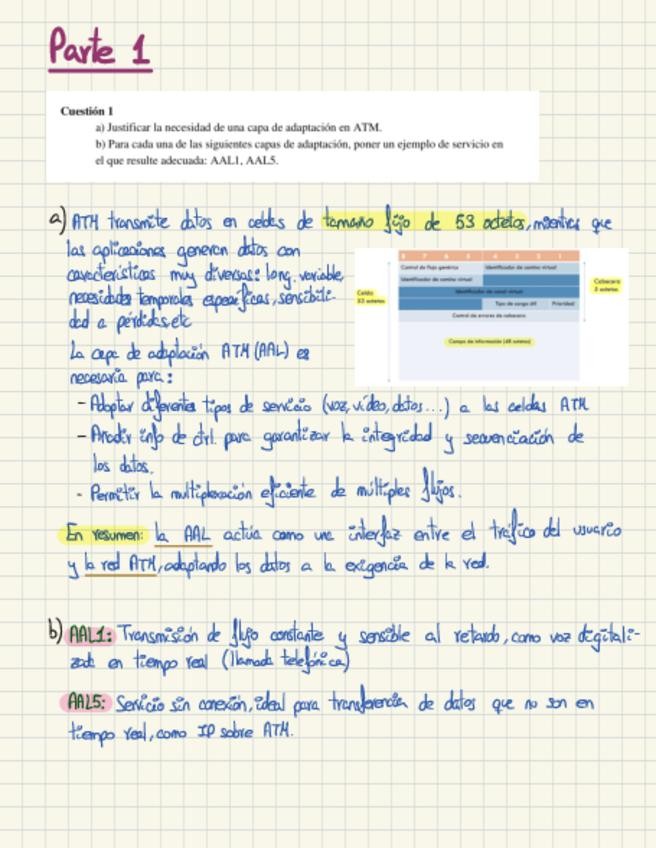 Parte 1
Cuestión 1
a) Justificar la necesidad de una capa de adaptación en ATM.
b) Para cada una de las siguientes capas de adaptación, poner un ejemplo de servicio en
el que resulte adecuada: AAL1, AAL5.
a) ATM transmite datos en celdas de tamaño fijo de 53 octetos, mientras que
las aplicaciones generan datos con
características muy diversas: long. variable,
necesidades temporales específicas, sensibili-
dad a pérdidas, etc
La capa de adaptación ATM (AAL) es
necesaria para:
8 7 6 5 4 3 2 1
Control de flujo genérico Identificador de camino virtual
Identificador de camino virtual
Identificador de canal virtual
Tipo de carga útil Prioridad
Control de errores de cabecera
Campo de información (48 octetos)
Celda
53 octetos
Cabecera
5 octetos
- Adaptar diferentes tipos de servicio (voz, vídeo, datos...) a las celdas ATM
- Añadir info de ctrl. para garantizar la integridad y secuenciación de
los datos.
- Permitir la multiplexación eficiente de múltiples flujos.
En resumen: la AAL actúa como una interfaz entre el tráfico del usuario
y la red ATM, adaptando los datos a la exigencia de la red.
b) AAL1: Transmisión de flujo constante y sensible al retardo, como voz digitali-
zada en tiempo real (llamada telefónica)
AAL5: Servicio sin conexión, ideal para transferencia de datos que no son en
tiempo real, como IP sobre ATM.